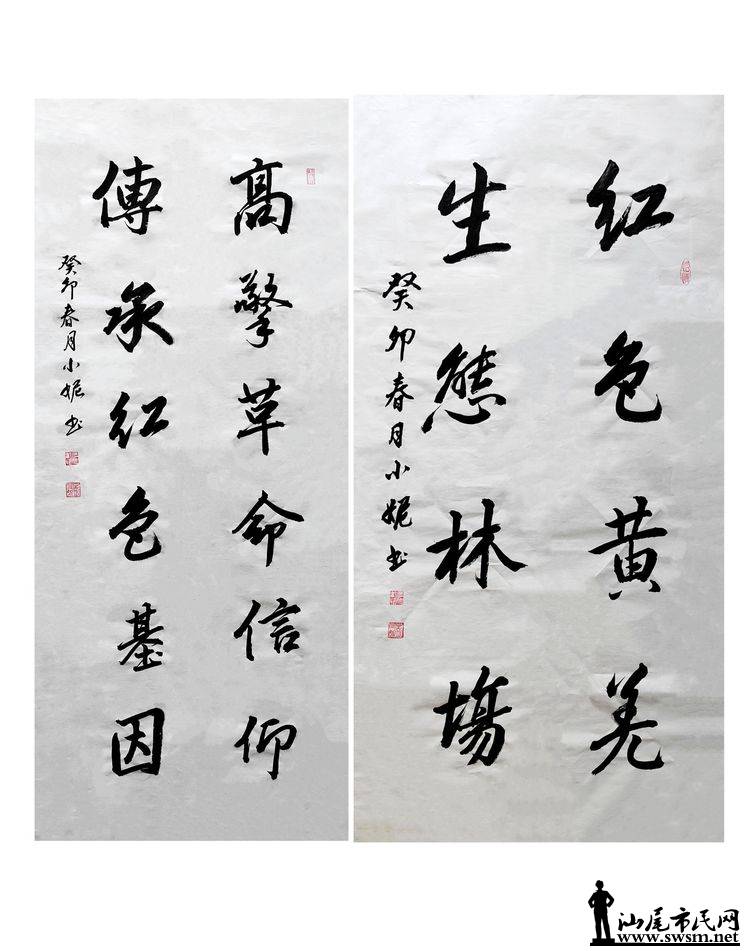 红色黄羌
生態林場
癸卯春月小妮书
高擎草命信仰
傳承红色基因
癸卯春月小妮书
汕尾市民网
www.swsm.net